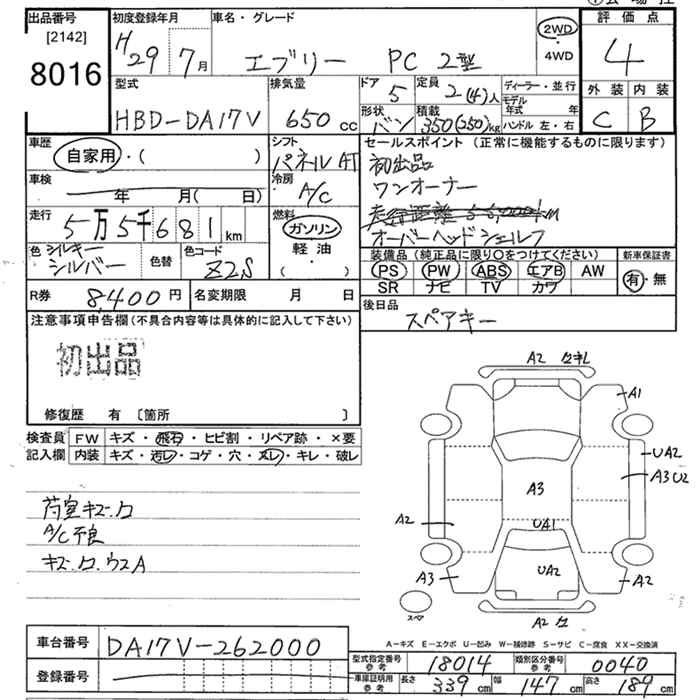 出品番号
[2142]
8016
初度登録年月
H29 7月
車名・グレード
エブリー PC 2型
2WD
・
4WD
評価点
4
外装 内装
C B
型式
HBD-DA17V
排気量
650 cc
ドア
5
定員
2(4)人
形状
バン
積載
350(250)kg
ディーラー・並行
モデル年式 年
ハンドル 左・右
車歴
自家用・( )
車検
年 月( 日)
走行
5万5千681km
色
シルキーシルバー
色替
色コード
Z2S
シフト
パネルAT
冷房
A/C
燃料
ガソリン
軽油・
( )
セールスポイント(正常に機能するものに限ります)
初出品
ワンオーナー
オーバーヘッドシェルフ
装備品(純正品に限り○をつけてください)
PS PW ABS エアB AW
SR ナビ TV カワ
新車保証書
有・無
R券 8,400円
名変期限 月 日
後日品
スペアキー
注意事項申告欄(不具合内容等は具体的に記入して下さい)
初出品
修復歴 有 〔箇所 〕
検査員記入欄
FW キズ・飛石・ヒビ割・リペア跡・×要
内装 キズ・汚レ・コゲ・穴・スレ・キレ・破レ
荷室キズ.凹
A/C不良
キズ.凹.ウスA
A2
A1
UA2
A3 U2
A3
A2
UA1
UA2
A3
A2
A2
スペア
A-キズ E-エクボ U-凹み W-補修跡 S-サビ C-腐食 XX-交換済
車台番号
DA17V-262000
登録番号
型式指定番号
参考
18014
類別区分番号
参考
0040
車庫証明用
参考
長さ 339cm 幅 147cm 高さ 189cm